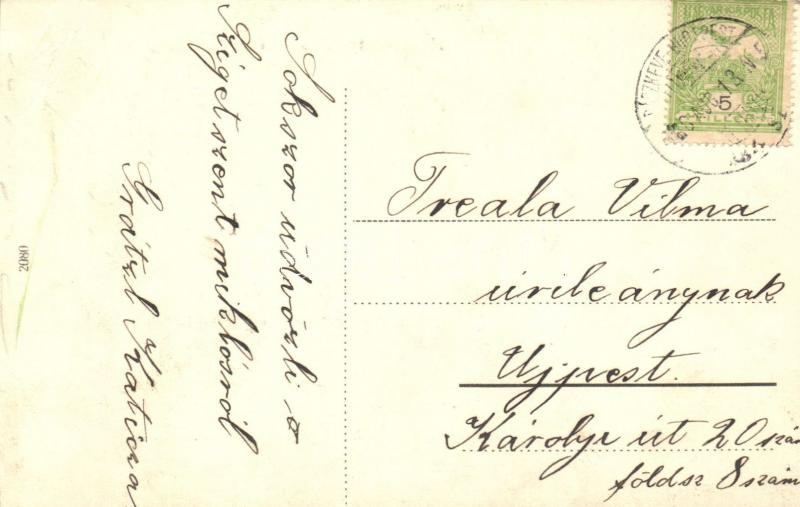 Sokszor üdvözli a
Szigetszentmiklósról
Grátzl Katicza
2080
Treala Vilma
úrileánynak
Ujpest.
Károlyi út 20 szám
földsz 8 szám
MAGYAR KIR. POSTA
5
FILLER